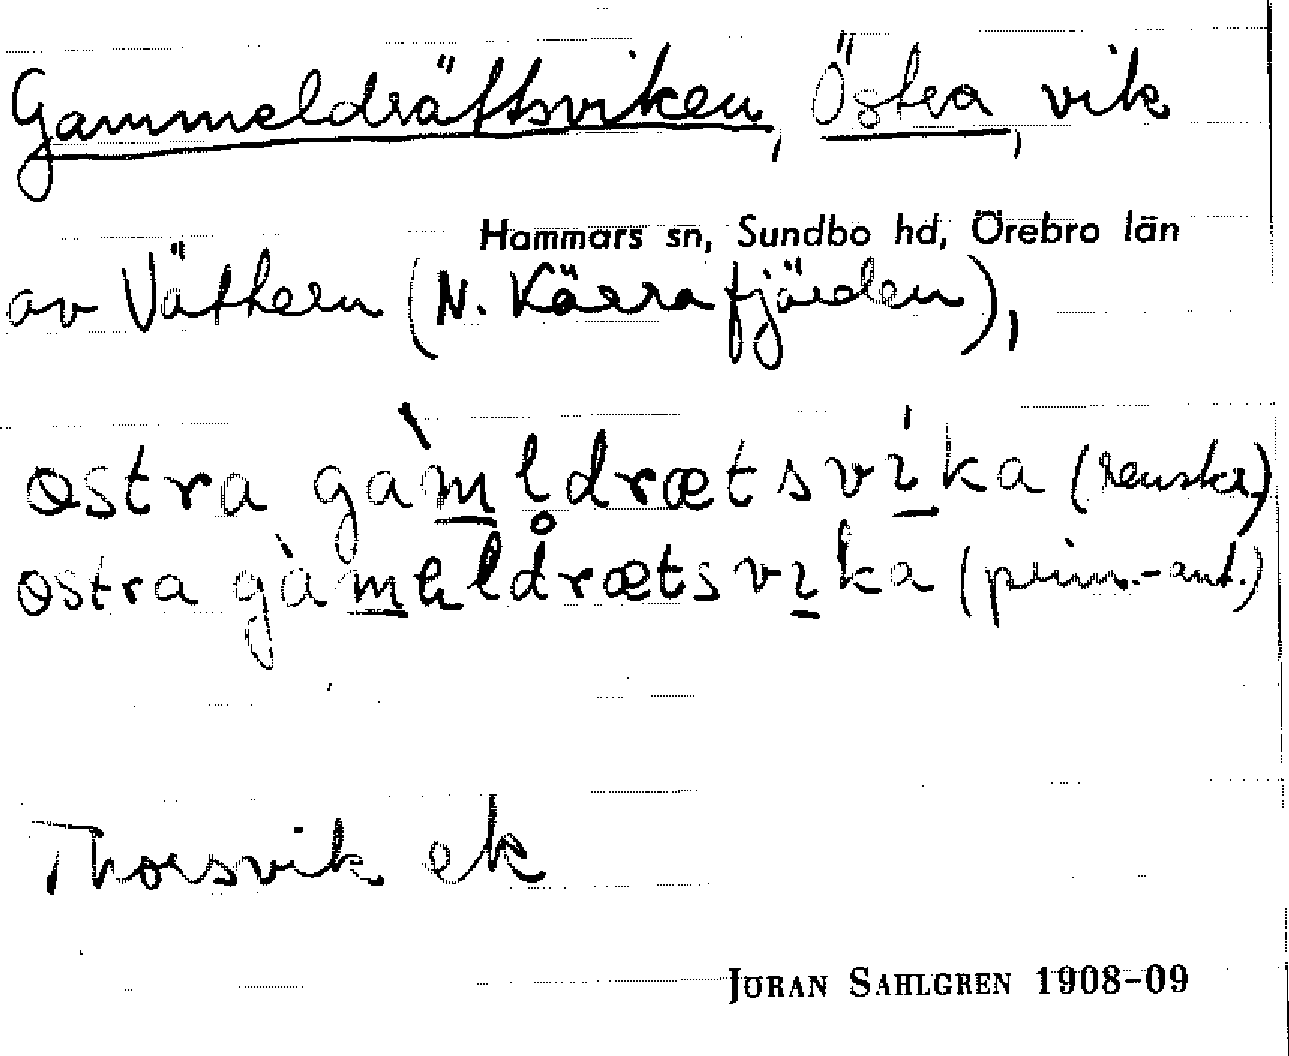 Gammeldrättsviken, Östra, vik
Hammars sn, Sundbo hd, Örebro län
av Vättern (N. Kärrafjärden),
östra gàml̥drætsvíka (renskr.)
östra gàmeldrætsvika (prim.-ant.)
Thorsvik ek
JÖRAN SAHLGREN 1908-09